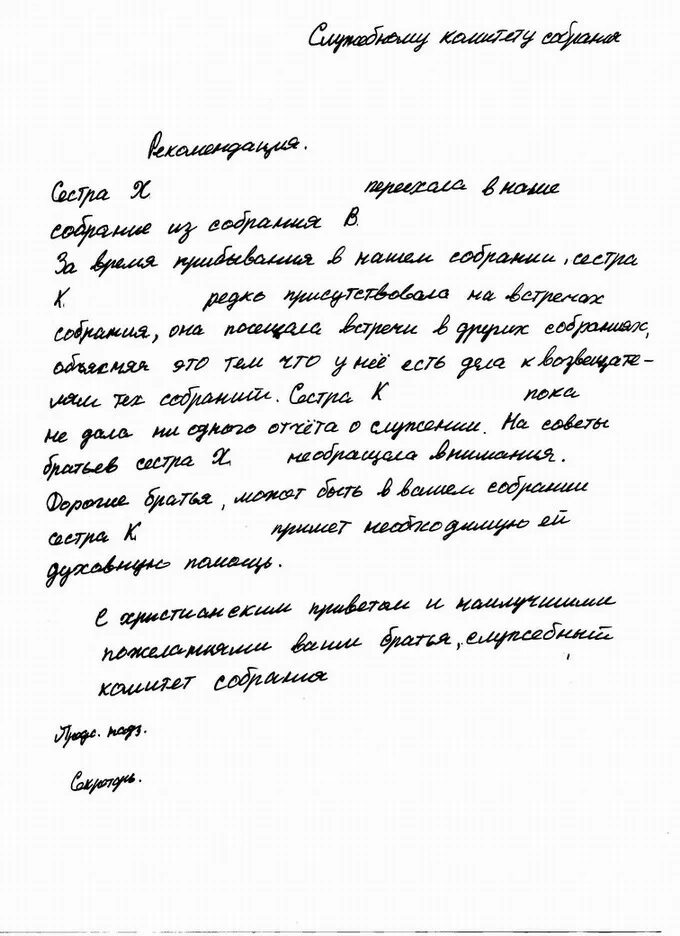 Служебному комитету собрания
Рекомендация.
Сестра Х переехала в наше
собрание из собрания В.
За время прибывания в нашем собрании, сестра
К. редко присутствовала на встречах
собрания, она посещала встречи в других собраниях,
объясняя это тем что у неё есть дела к возвещате-
лям тех собраний. Сестра К пока
не дала ни одного отчёта о служении. На советы
братьев сестра Х. необращала внимания.
Дорогие братья, может быть в вашем собрании
сестра К. примет необходимую ей
духовную помощь.
С христианским приветом и наилучшими
пожеланиями ваши братья, служебный
комитет собрания
Предс. надз.
Секретарь.